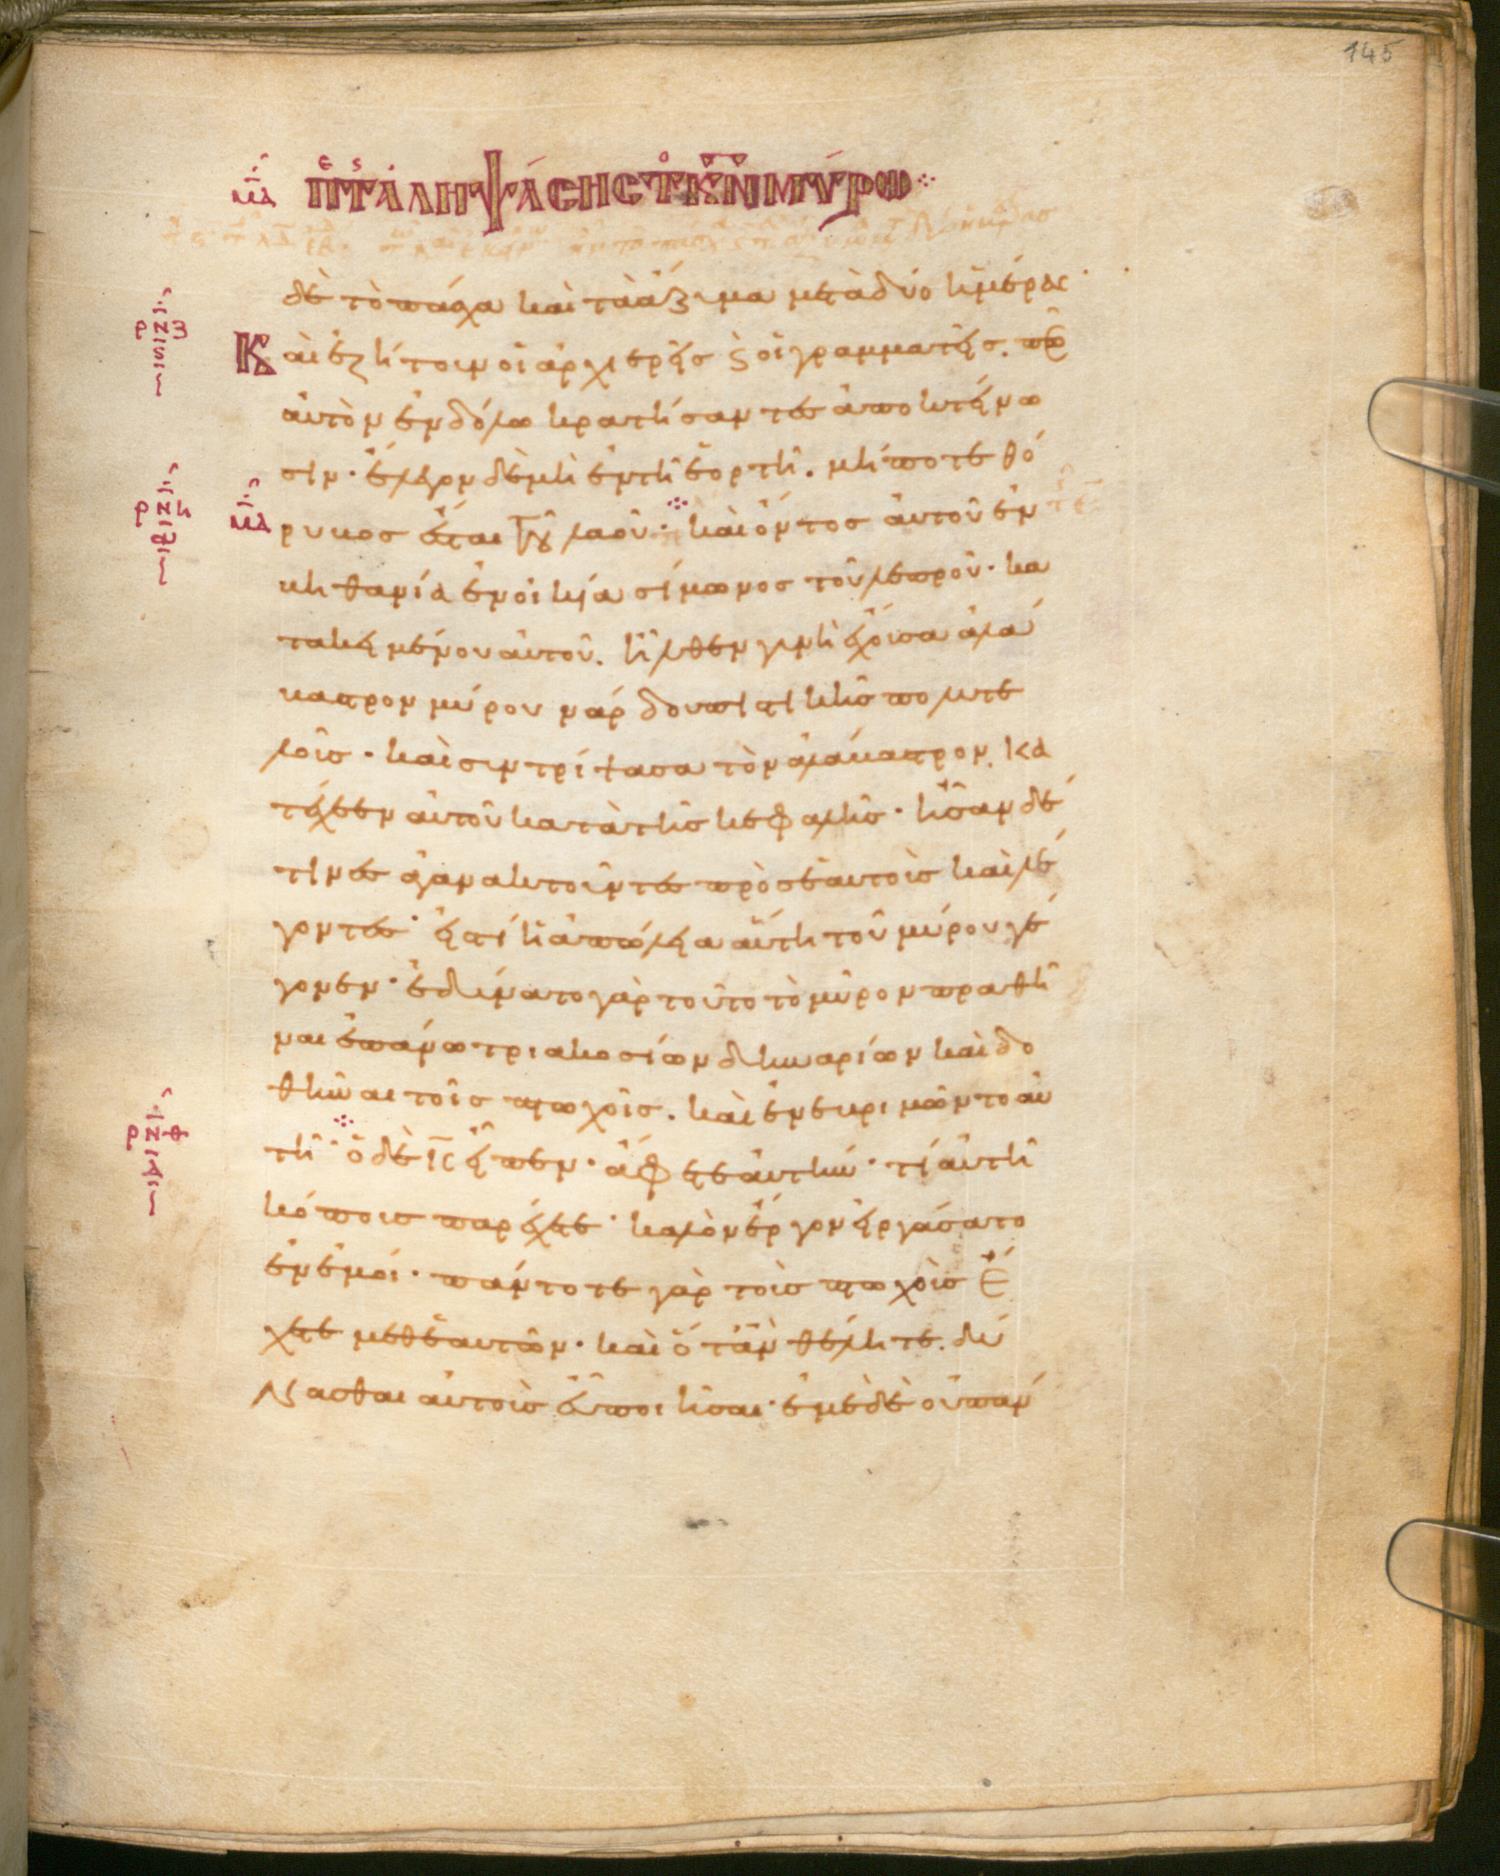 145
μδ πτ αλειψάσης τ κν μύρω
δὲ τὸ πάσχα καὶ τὰ ἄζυμα μετὰ δύο ἡμέρας·
Καὶ ἐζήτουν οἱ ἀρχιερεῖς ϗ οἱ γραμματεῖς. πῶς
αὐτὸν ἐν δόλω κρατήσαντες ἀποκτείνω
σιν· ἔλεγον δὲ μὴ ἐν τῆ ἑορτῆ. μήποτε θό
ρυβος ἔσται τοῦ λαοῦ· καὶ ὄντος αὐτοῦ ἐν
βηθανία ἐν οἰκία σίμωνος τοῦ λεπροῦ· κα
τακειμένου αὐτοῦ. ἦλθεν γυνὴ ἔχουσα ἀλά
βαστρον μύρου νάρδου πιστικῆς πολυτε
λοῦς· καὶ συντρίψασα τὸν ἀλάβαστρον. κα
τέχεεν αὐτοῦ κατὰ τῆς κεφαλῆς· ἦσαν δέ
τινες ἀγανακτοῦντες πρὸς ἑαυτοὺς καὶ λέ
γοντες· εἰς τί ἡ ἀπώλεια αὕτη τοῦ μύρου γέ
γονεν· ἐδύνατο γὰρ τοῦτο τὸ μύρον πραθῆ
ναι ἐπάνω τριακοσίων δηναρίων καὶ δο
θῆναι τοῖς πτωχοῖς. καὶ ἐνεβριμῶντο αὐ
τῆ· ὁ δὲ ις εἶπεν· ἄφετε αὐτὴν· τί αὐτῆ
κόπους παρέχετε· καλὸν ἔργον εἰργάσατο
ἐν ἐμοί· πάντοτε γὰρ τοὺς πτωχοὺς ἔ
χετε μεθ ἑαυτῶν· καὶ ὅταν θέλητε. δύ
νασθαι αὐτοὺς εὖ ποιῆσαι· ἐμὲ δὲ οὐ πάν
ρνζ
ς
ρνη
μδ
ρνθ